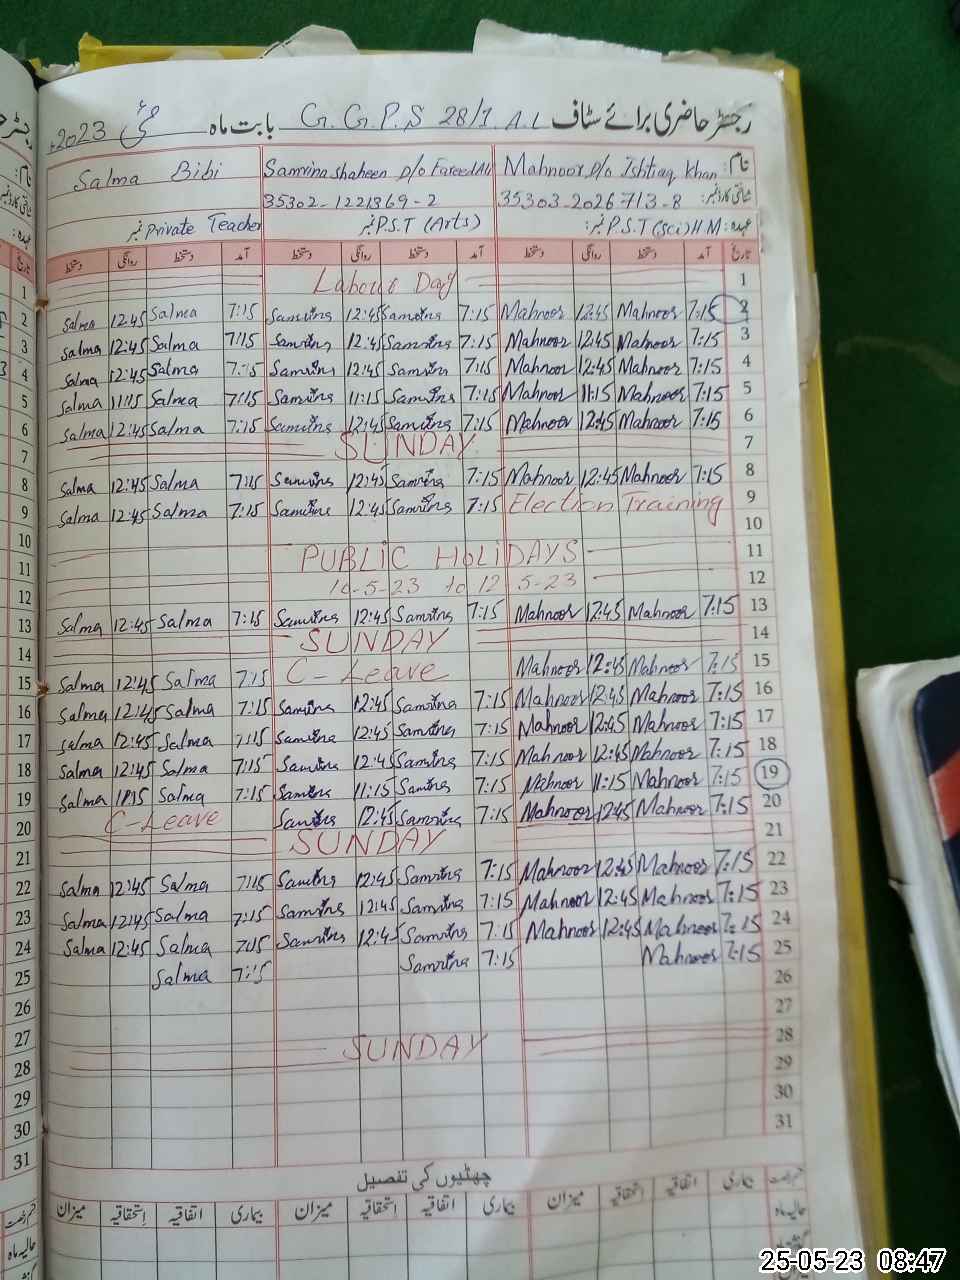 رجسٹر حاضری برائے سٹاف G.G.P.S 28/1.A.L بابت ماہ مئی 2023ء
نام: Mahnoor D/o Ishtiaq Khan Samrina Shaheen D/o Fareed Ali Salma Bibi
شناختی کارڈ نمبر: 35303-2026713-8 35302-1221369-2
عہدہ: P.S.T (Sci) H.M نمبر: P.S.T (Arts) نمبر Private Teacher نمبر
تاریخ آمد دستخط روانگی دستخط آمد دستخط روانگی دستخط آمد دستخط روانگی دستخط
Labour Day 1
Salma 12:45 Salma 7:15 Samrina 12:45 Samrina 7:15 Mahnoor 12:45 Mahnoor 7:15 2
Salma 12:45 Salma 7:15 Samrina 12:45 Samrina 7:15 Mahnoor 12:45 Mahnoor 7:15 3
Salma 12:45 Salma 7:15 Samrina 12:45 Samrina 7:15 Mahnoor 12:45 Mahnoor 7:15 4
Salma 11:15 Salma 7:15 Samrina 11:15 Samrina 7:15 Mahnoor 11:15 Mahnoor 7:15 5
Salma 12:45 Salma 7:15 Samrina 12:45 Samrina 7:15 Mahnoor 12:45 Mahnoor 7:15 6
SUNDAY 7
Salma 12:45 Salma 7:15 Samrina 12:45 Samrina 7:15 Mahnoor 12:45 Mahnoor 7:15 8
Salma 12:45 Salma 7:15 Samrina 12:45 Samrina 7:15 Election Training 9
10
PUBLIC HOLIDAYS 11
10-5-23 to 12 5-23 12
Salma 12:45 Salma 7:15 Samrina 12:45 Samrina 7:15 Mahnoor 12:45 Mahnoor 7:15 13
SUNDAY 14
Salma 12:45 Salma 7:15 C-Leave Mahnoor 12:45 Mahnoor 7:15 15
Salma 12:45 Salma 7:15 Samrina 12:45 Samrina 7:15 Mahnoor 12:45 Mahnoor 7:15 16
Salma 12:45 Salma 7:15 Samrina 12:45 Samrina 7:15 Mahnoor 12:45 Mahnoor 7:15 17
Salma 12:45 Salma 7:15 Samrina 12:45 Samrina 7:15 Mahnoor 12:45 Mahnoor 7:15 18
Salma 11:15 Salma 7:15 Samrina 11:15 Samrina 7:15 Mahnoor 11:15 Mahnoor 7:15 19
C-Leave Samrina 12:45 Samrina 7:15 Mahnoor 12:45 Mahnoor 7:15 20
SUNDAY 21
Salma 12:45 Salma 7:15 Samrina 12:45 Samrina 7:15 Mahnoor 12:45 Mahnoor 7:15 22
Salma 12:45 Salma 7:15 Samrina 12:45 Samrina 7:15 Mahnoor 12:45 Mahnoor 7:15 23
Salma 12:45 Salma 7:15 Samrina 12:45 Samrina 7:15 Mahnoor 12:45 Mahnoor 7:15 24
Salma 7:15 Samrina 7:15 Mahnoor 7:15 25
26
27
SUNDAY 28
29
30
31
چھٹیوں کی تفصیل
بیماری اتفاقیہ استحقاقیہ میزان بیماری اتفاقیہ استحقاقیہ میزان بیماری اتفاقیہ استحقاقیہ میزان
حالیہ ماہ
25-05-23 08:47